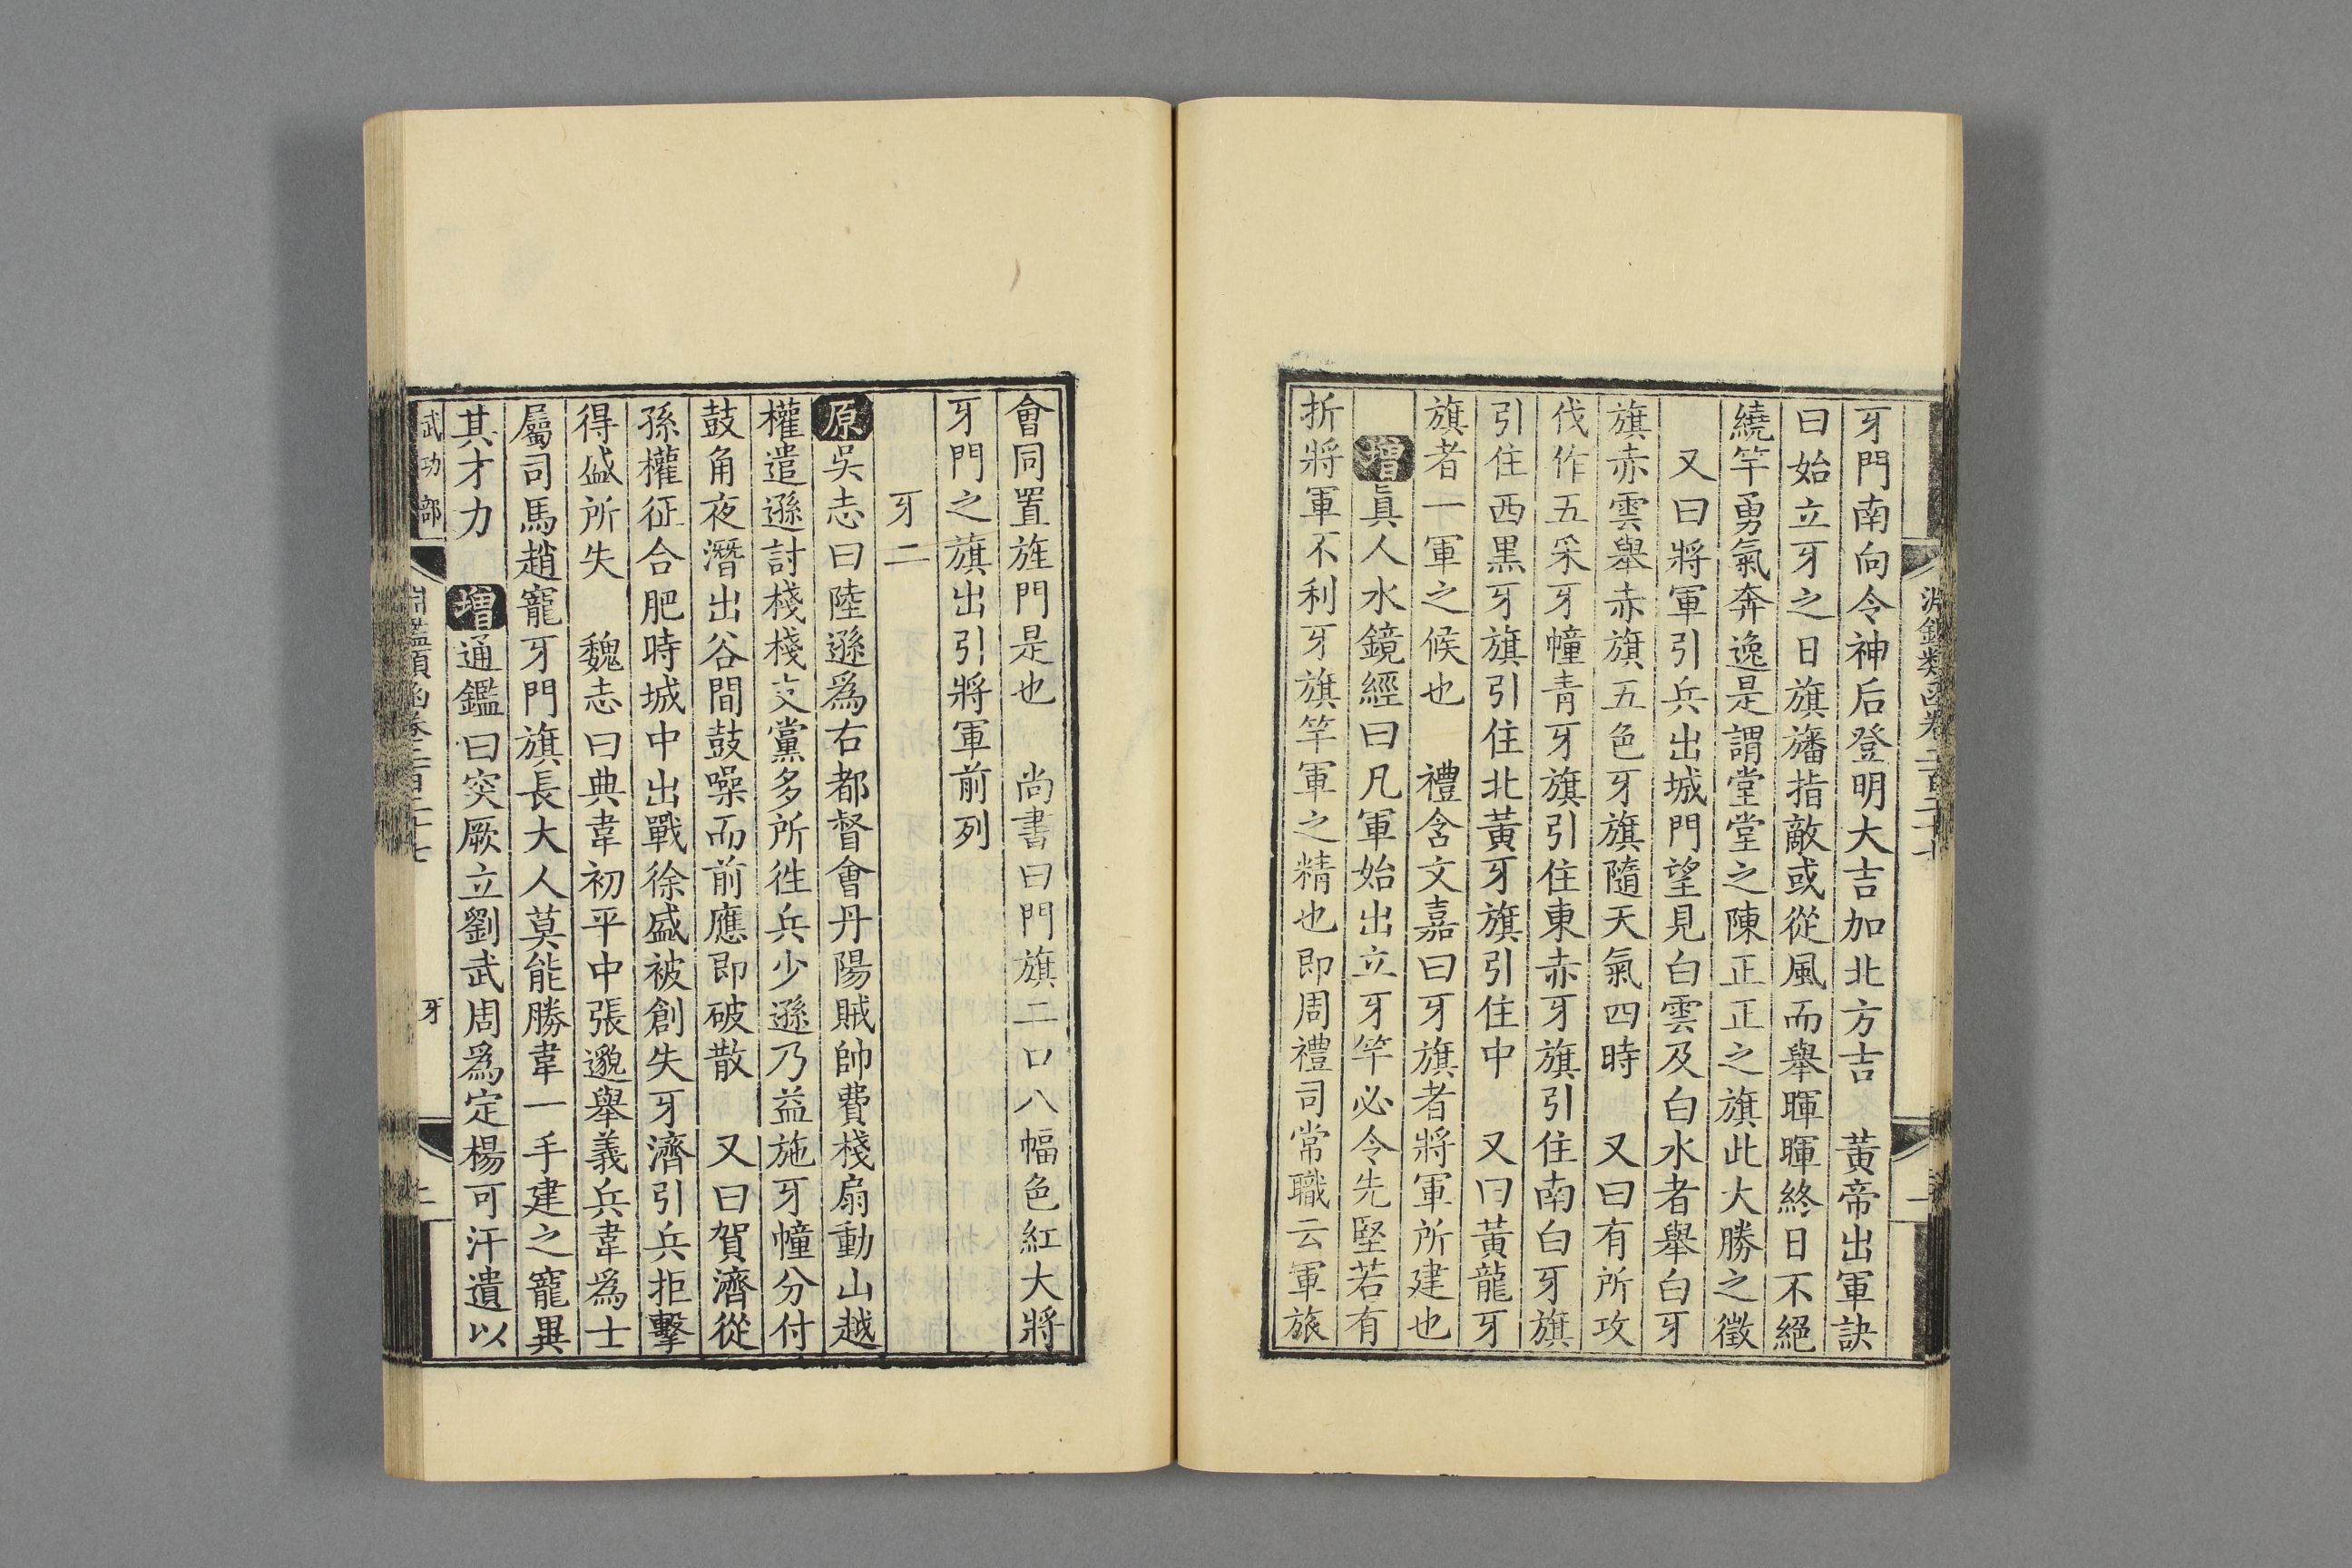 牙門南向令神后登明大吉加北方吉　黃帝出軍訣
曰始立牙之日旗旛指敵或從風而舉暉暉終日不絕
繞竿勇氣奔逸是謂堂堂之陳正正之旗此大勝之徵
又曰將軍引兵出城門望見白雲及白水者舉白牙
旗赤雲舉赤旗五色牙旗隨天氣四時　又曰有所攻
伐作五采牙幢青牙旗引住東赤牙旗引住南白牙旗
引住西黑牙旗引住北黃牙旗引住中　又曰黃龍牙
旗者一軍之候也　禮含文嘉曰牙旗者將軍所建也
增眞人水鏡經曰凡軍始出立牙竿必令先堅若有
折將軍不利牙旗竿軍之精也即周禮司常職云軍旅
會同置旌門是也　尚書曰門旗二口八幅色紅大將
牙門之旗出引將軍前列
牙二
原吳志曰陸遜爲右都督會丹陽賊帥費棧扇動山越
權遣遜討棧棧支黨多所徃兵少遜乃益施牙幢分付
鼓角夜潛出谷間鼓噪而前應即破散　又曰賀濟從
孫權征合肥時城中出戰徐盛被創失牙濟引兵拒擊
得盛所失　魏志曰典韋初平中張邈舉義兵韋爲士
屬司馬趙寵牙門旗長大人莫能勝韋一手建之寵異
其才力　增通鑑曰突厥立劉武周爲定楊可汗遺以
武功部
淵鑑類函卷二百二十七
牙
二